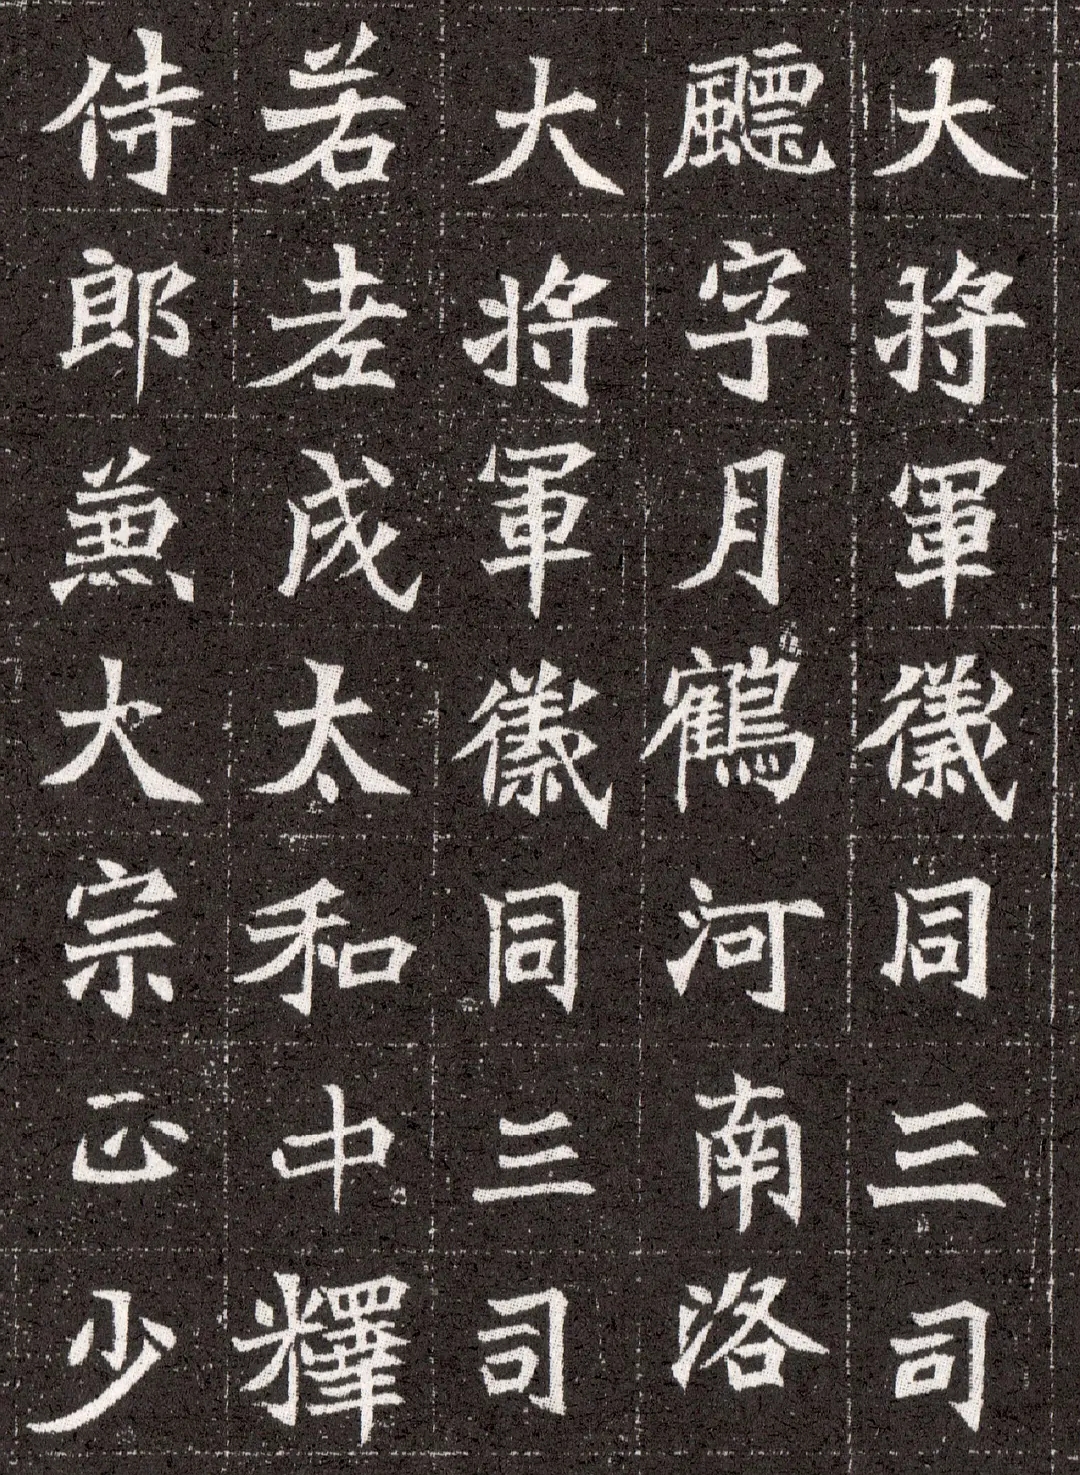 大將軍儀同三司
飃字月鶴河南洛
大將軍儀同三司
若考成太和中釋
侍郎兼大宗正少